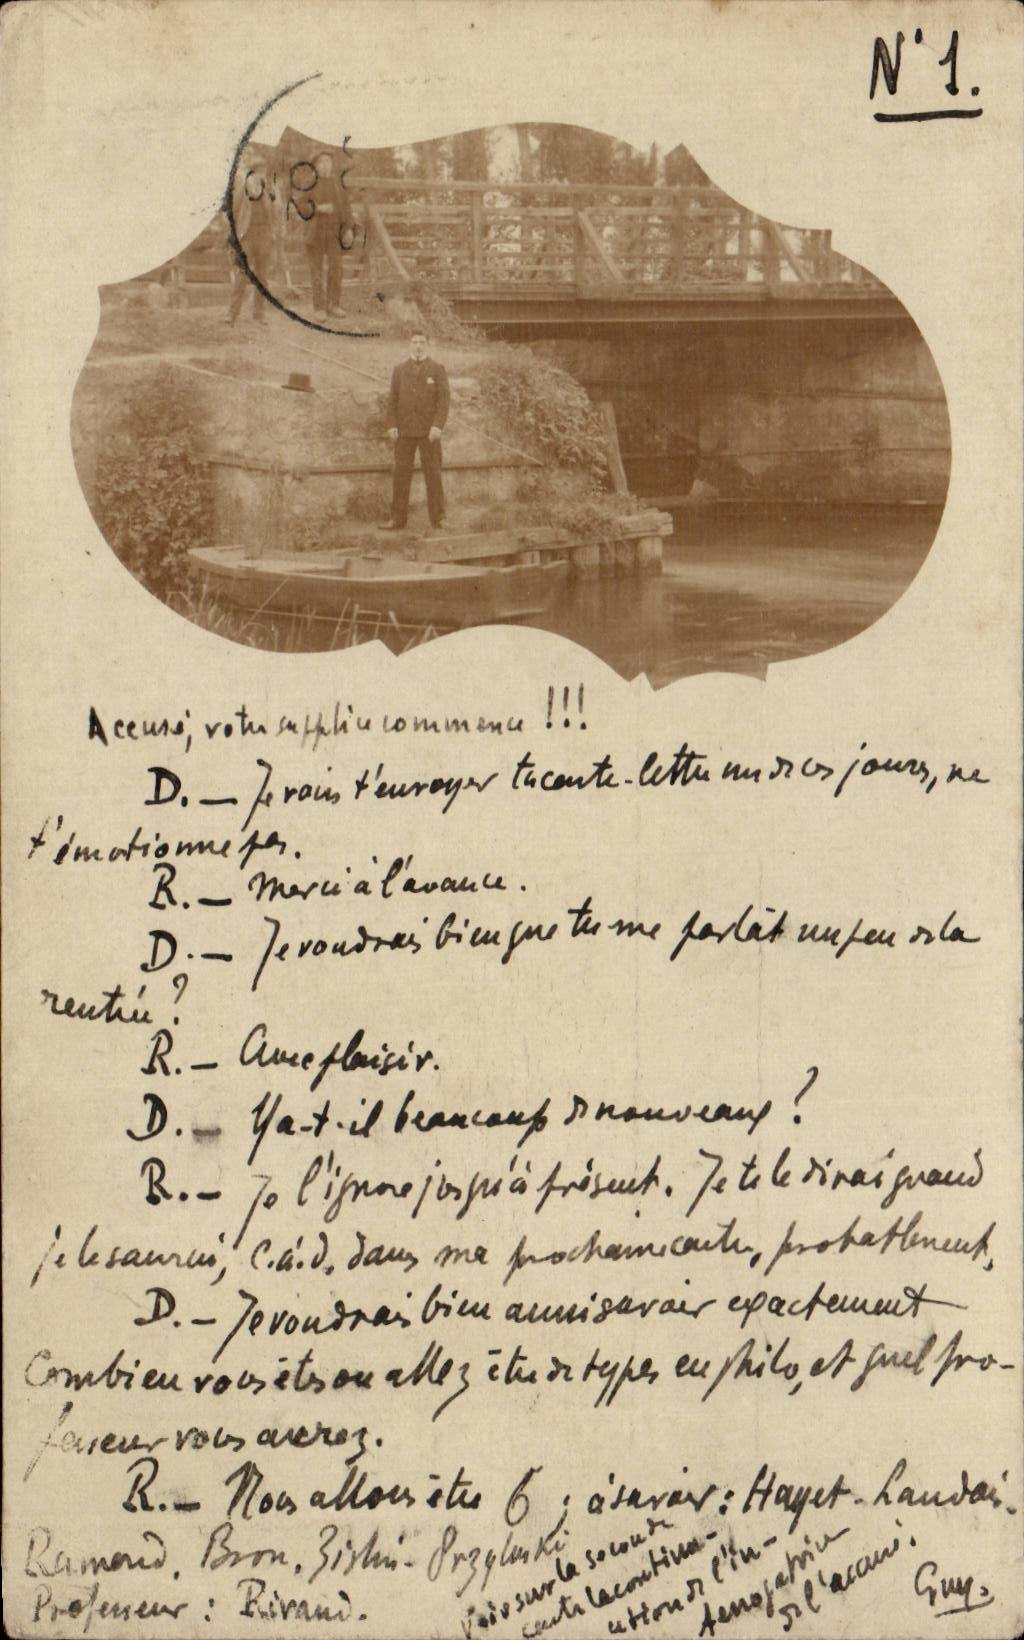 N° 1.
Accusé, votre supplice commence !!!
D. — Je vais t'envoyer ta carte-lettre un de ces jours, ne
t'émotionne pas.
R. — Merci à l'avance.
D. — Je voudrais bien que tu me parlât un peu de la
rentrée ?
R. — Avec plaisir.
D. — Y a-t-il beaucoup de nouveaux ?
R. — Je l'ignore jusqu'à présent. Je te le dirai quand
je le saurai, c.à.d. dans ma prochaine carte, probablement.
D. — Je voudrais bien aussi savoir exactement
combien vous êtes ou allez être de types en philo, et quel pro-
fesseur vous aurez.
R. — Nous allons être 6 ; à savoir : Hayet - Landais -
Ramond, Bron, Przyluski
Professeur : Rivaud.
Voir sur la seconde
carte la continu-
ation de l'in-
terrogatoire
de l'accusé.
Guy.
02